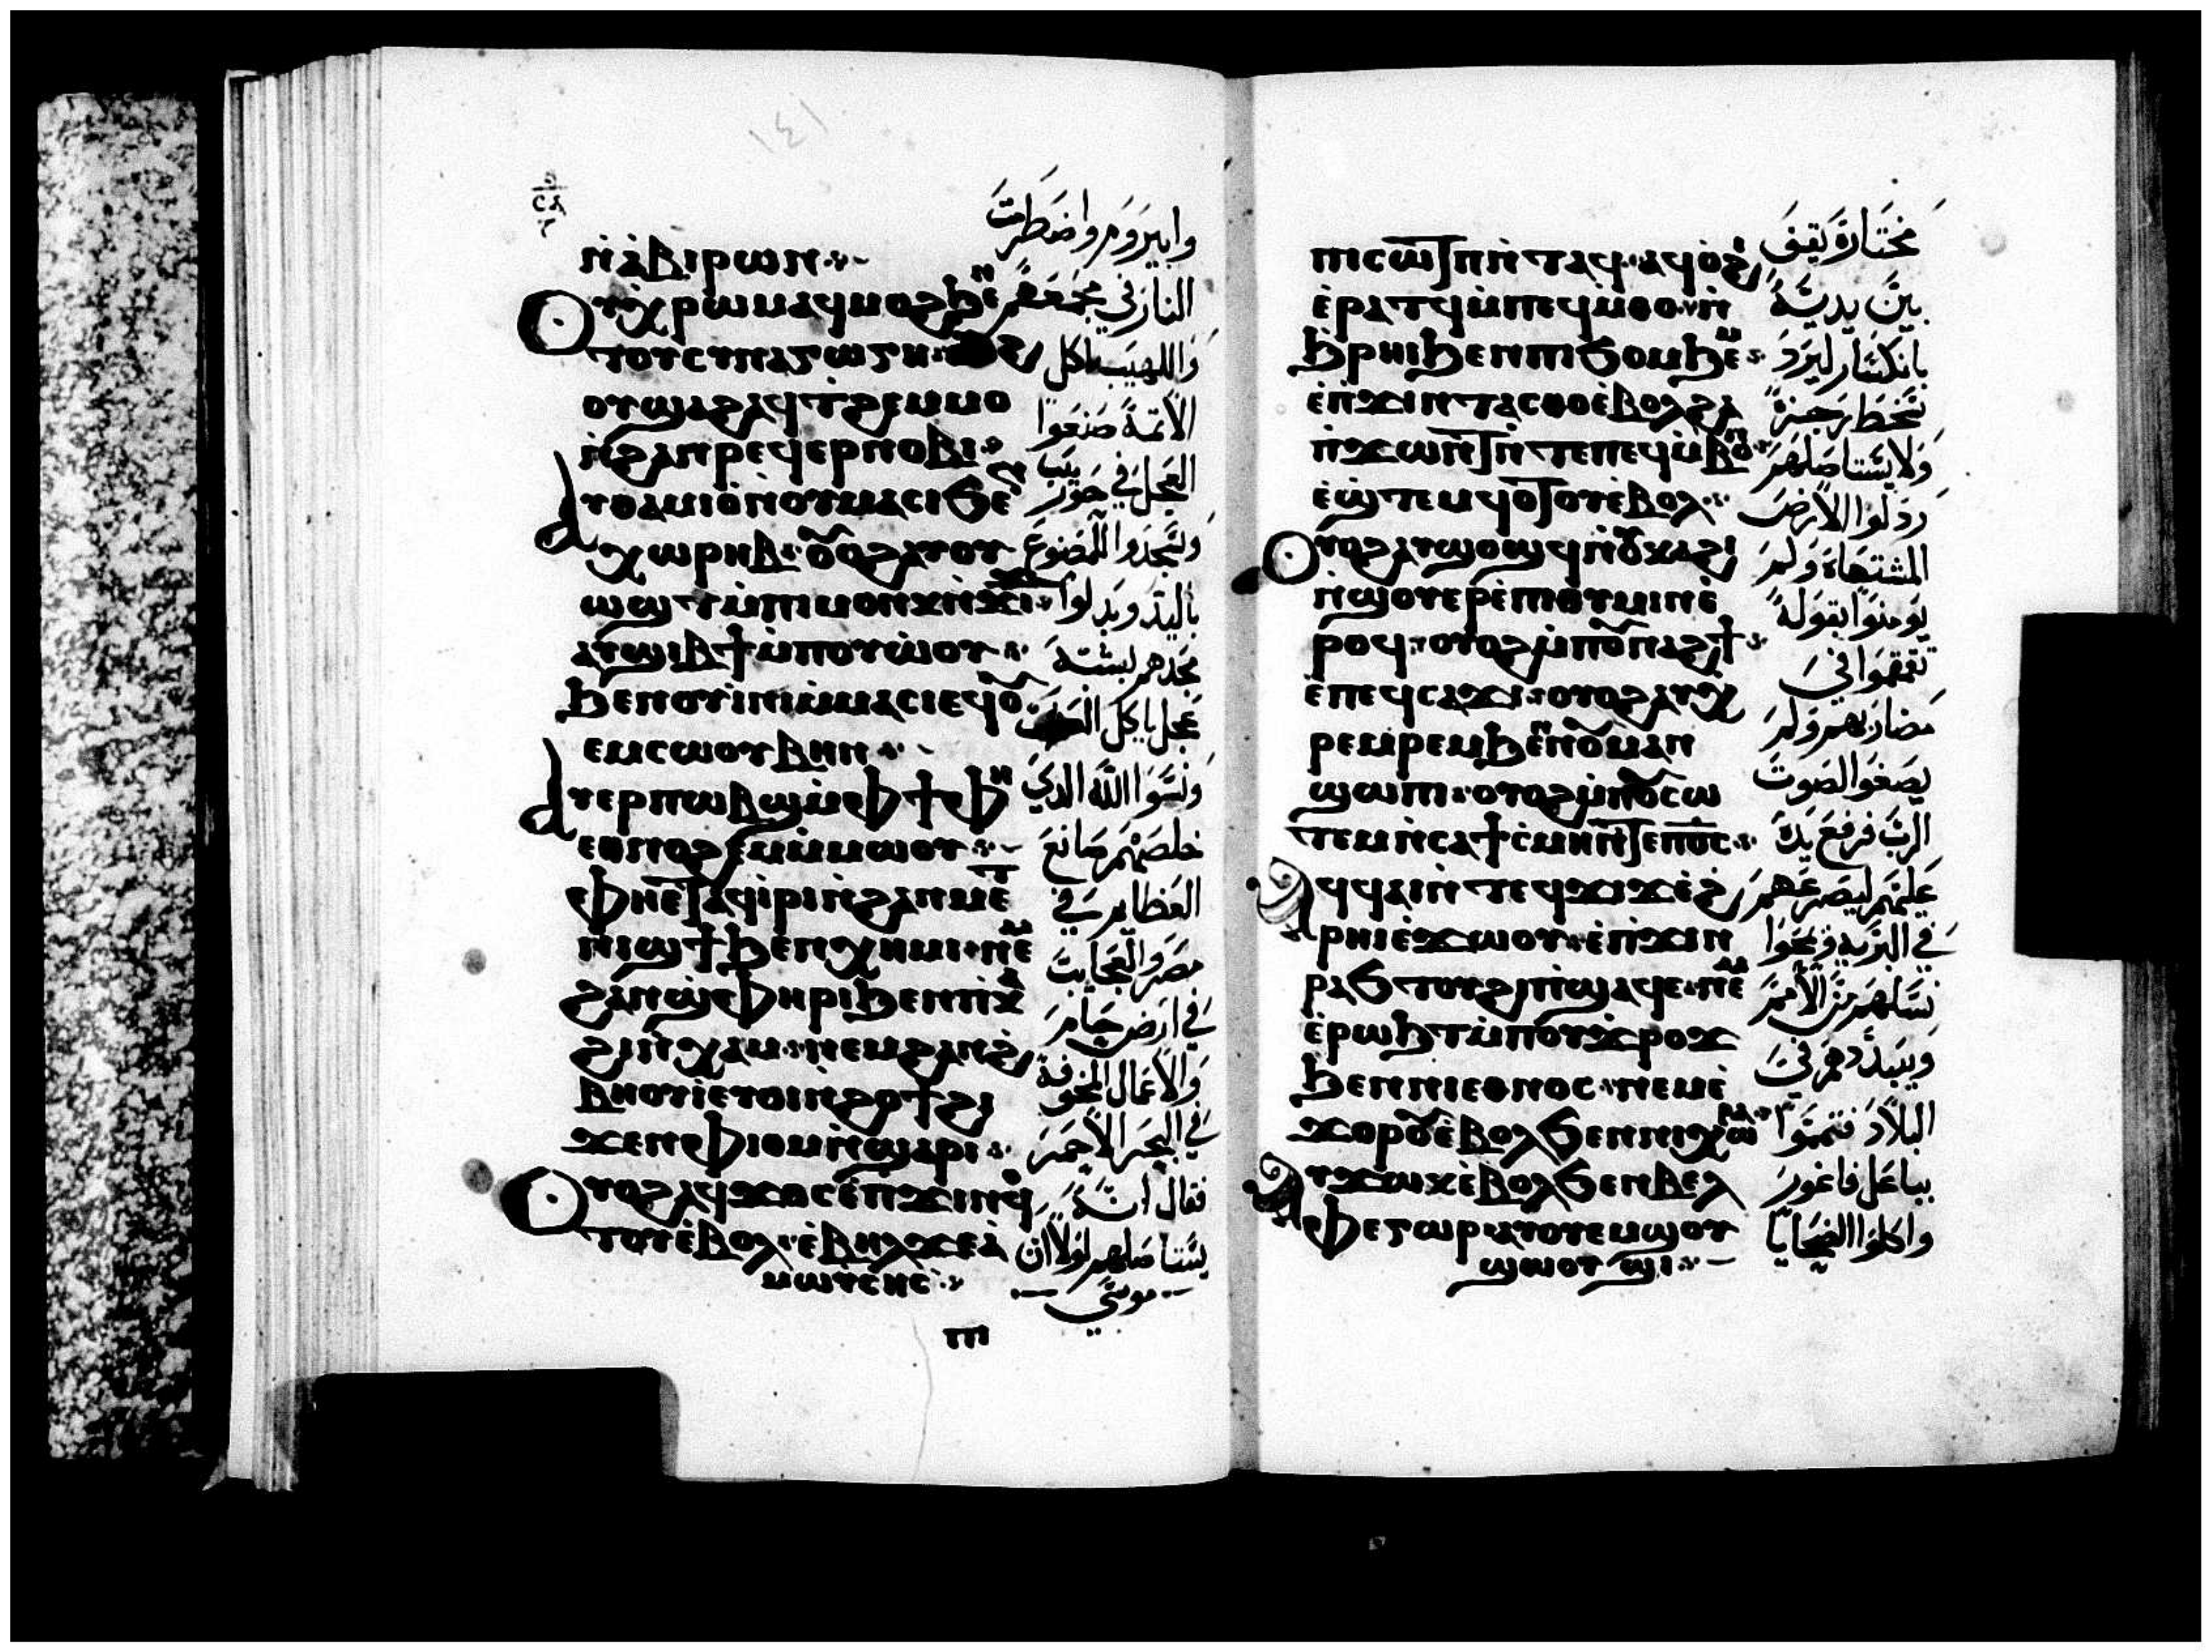 ⲥⲗ
ⲛ̇ⲁ̇ⲃⲓⲣⲱⲛ
ⲟⲩⲭⲣⲱⲙⲁϥⲙⲟϩϧⲉⲛ
ⲧⲟⲩⲥⲩⲛⲁⲅⲱⲅⲏ
ⲟⲩϣⲁϩⲁϥϯϩⲉⲙⲙⲟ
ⲛ̇ϩⲁⲛⲣⲉϥⲉⲣⲛⲟⲃⲓ
ⲁⲩⲑⲁⲙⲓⲟ̇ⲛ̇ⲟⲩⲙⲁⲥⲓϭⲉⲛ
ⲭⲱⲣⲏⲃ ⲟⲩⲟϩⲁⲩⲟⲩ
ⲱϣⲧⲙ̇ⲡⲓⲙⲟⲛⲕⲛ̇ϫⲓϫ
ⲁⲩϣⲓⲃϯⲙ̇ⲡⲟⲩⲱ̇ⲟⲩ
ϧⲉⲛⲟⲩⲓ̇ⲛⲓⲙ̇ⲙⲁⲥⲓⲉϥⲟⲩ
ⲉⲙⲥⲱⲟⲩⲃⲏⲛ
ⲁⲩⲉⲣⲡⲱⲃϣⲙ̇ⲫϯⲫⲏ
ⲉⲑⲛⲟϩⲉⲙⲙ̇ⲙⲱⲟⲩ
ⲫⲏⲉⲧⲁϥⲓ̇ⲣⲓⲛ̇ϩⲁⲛⲙⲉⲧ
ⲛⲓϣϯϧⲉⲛⲭⲏⲙⲓ ⲛⲉⲙ
ϩⲁⲛϣ̇ⲫⲏⲣⲓϧⲉⲛⲡⲕⲁ
ϩⲓⲛ̇ⲭⲁⲙ ⲛⲉⲙϩⲁⲛϩ
ⲃⲏⲟⲩⲓ̇ⲉⲧⲟⲓⲛ̇ϩⲟϯϩⲓ
ϫⲉⲛⲫⲓⲟⲙⲛ̇ϣⲁⲣⲓ
ⲟⲩⲟϩⲁϥϫⲟⲥⲉ̇ⲡϫⲓⲛϥⲟ
ⲧⲟⲩⲉ̇ⲃⲟⲗ ⲉ̇ⲃⲏⲗϫⲉⲁ̇
ⲙⲱⲩⲥⲏⲥ
ⲡⲓ
وابيروم واضطرمت
النار في مجمعهم
واللهيب اكل
الاثمة صنعوا
العجل في حوريب
وسجدوا للمصنوع
باليد وبدلوا
مجدهم بشبه
عجل ياكل
ونسوا الله الذي
خلصهم صانع
العظايم في
مصر والعجايب
في ارض حام
والاعمال المخوفة
في البحر الاحمر
فقال انه
يستاصلهم لولا ان
موسي
ⲡⲓⲥⲱⲧⲡⲛ̇ⲧⲁϥ ⲁϥⲟ̇ϩⲓ
ⲉ̇ⲣⲁⲧϥⲙ̇ⲡⲉϥⲙ̇ⲑⲟ ⲛ̇
ϧⲣⲏⲓϧⲉⲛⲡⲓϭⲟⲙϧⲉⲙ
ⲉ̇ⲡϫⲓⲛⲧⲁⲥⲑⲟⲉ̇ⲃⲟⲗϩⲁ
ⲡϫⲱⲛⲧⲛ̇ⲧⲉⲡⲉϥⲙ̇ⲃⲟⲛ
ⲉ̇ϣⲧⲉⲙϥⲟⲧⲟⲩⲉ̇ⲃⲟⲗ
ⲟⲩⲟϩⲁⲩϣⲟϣϥⲛ̇ⲟⲩⲕⲁϩⲓ
ⲛ̇ϣⲟⲩⲉⲣⲉ̇ⲡⲓⲑⲩⲙⲓⲛⲉ̇
ⲣⲟϥ ⲟⲩⲟϩⲙ̇ⲡⲟⲩⲛⲁϩϯ
ⲉ̇ⲡⲉϥⲥⲁϫⲓ ⲟⲩⲟϩⲁⲩⲭ
ⲣⲉⲙⲣⲉⲙϧⲉⲛⲛⲟⲩⲙⲁⲛ
ϣⲱⲡⲓ ⲟⲩⲟϩⲙ̇ⲡⲟⲩⲥⲱ
ⲧⲉⲙⲛ̇ⲥⲁϯⲥ̇ⲙⲏⲛ̇ⲧⲉⲡⲟ̅ⲥ̅
ⲁϥϥⲁⲓⲛ̇ⲧⲉϥϫⲓϫⲉ̇ϩ
ⲣⲏⲓⲉ̇ϫⲱⲟⲩ ⲉ̇ⲡϫⲓⲛ
ⲣⲁϭⲧⲟⲩϩⲓⲡ̇ϣⲁϥⲉ ⲛⲉⲙ
ⲉ̇ⲣⲱϧⲧⲙ̇ⲡⲟⲩϫⲣⲟϫ
ϧⲉⲛⲛⲓⲉⲑⲛⲟⲥ ⲛⲉⲙⲉ̇
ϫⲟⲣⲟⲩⲉ̇ⲃⲟⲗϭⲉⲛⲛⲓⲭⲱⲣⲁ
ⲁⲩϫⲱⲕⲉ̇ⲃⲟⲗϭⲉⲛⲃⲉⲗ
ⲫⲉⲅⲱⲣ ⲁⲩⲟⲩⲉⲙϣⲟⲩ
ϣⲱⲟⲩϣⲓ
مختاره يقف
بين يديه
بانكسار ليرد
سخط رجزه
ولا يستاصلهم
رذلوا الارض
المشتهاه ولم
يومنوا بقوله
تقمقموا في
مضاربهم ولم
يصغوا لصوت
الرب فرفع يده
عليهم ليصرعهم
في البرية
نسلهم من الامم
ويبددهم في
البلاد فتمموا
بباعل فاغور
واكلوا الضحايا